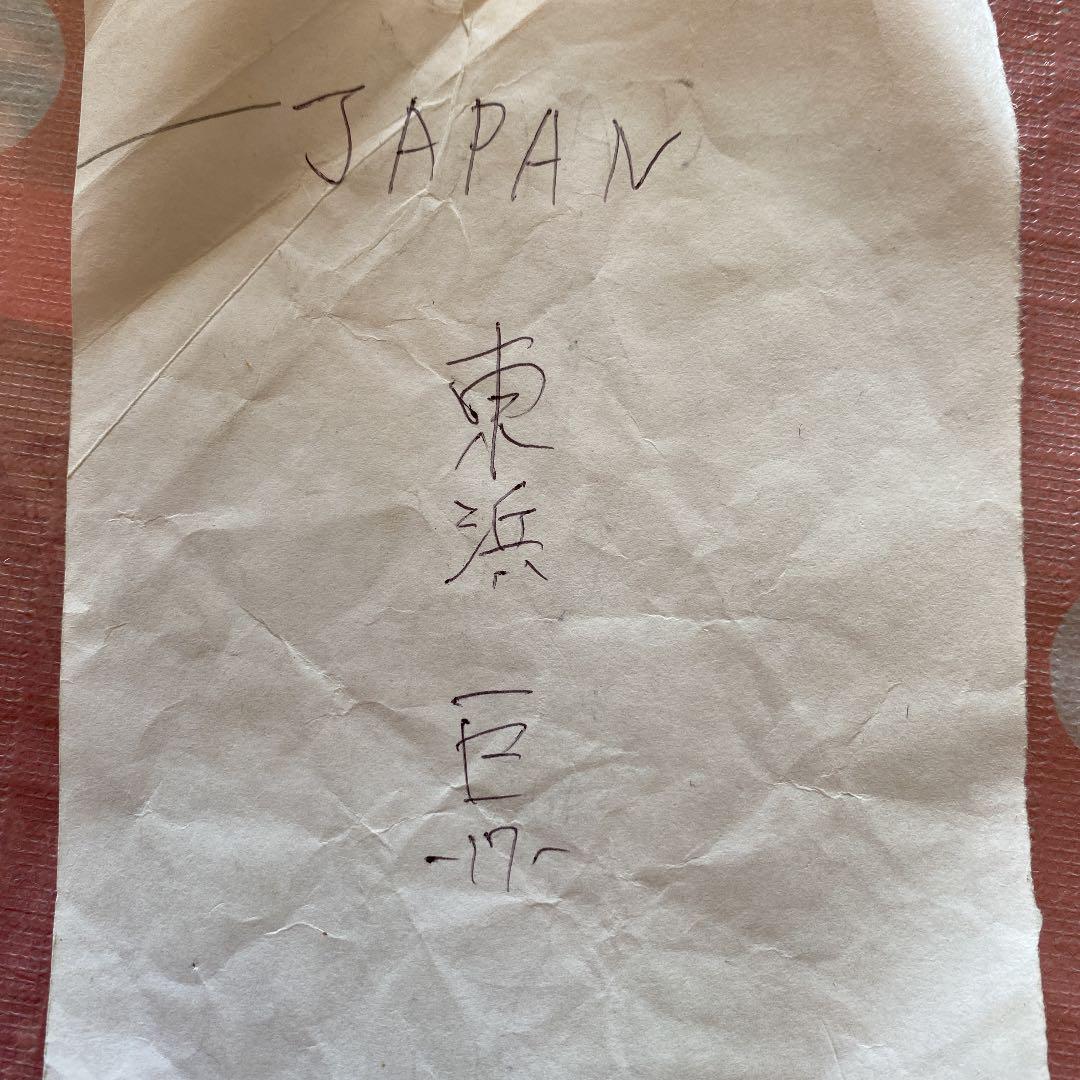 JAPAN
東浜
巨
-17-